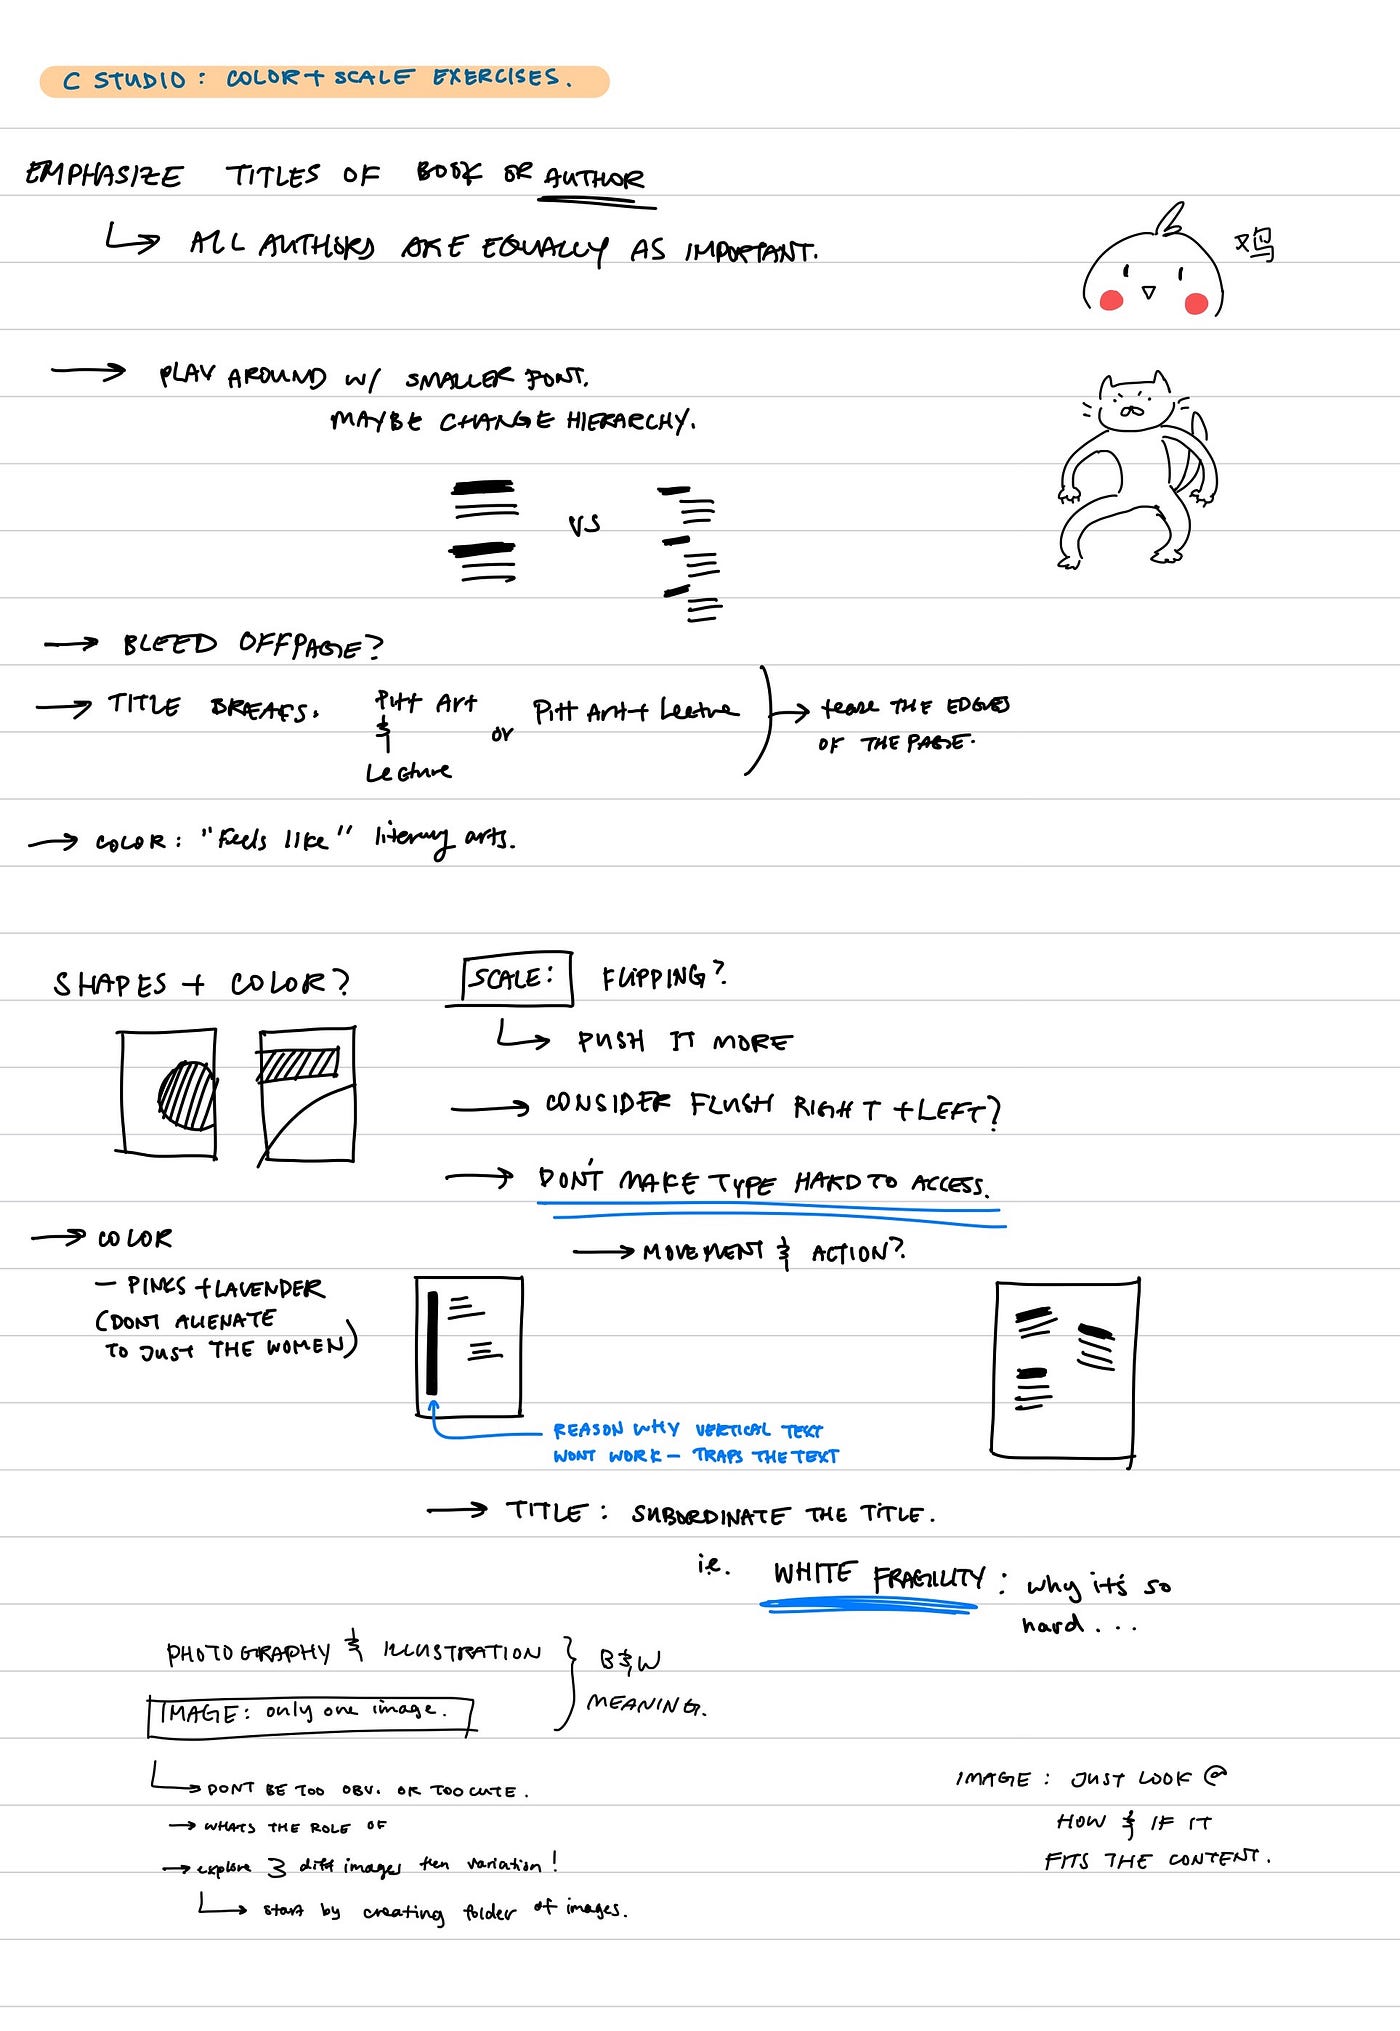 C STUDIO: COLOR + SCALE EXERCISES.
EMPHASIZE TITLES OF BOOK OR AUTHOR
ALL AUTHORS ARE EQUALLY AS IMPORTANT.
鸡
PLAY AROUND W/ SMALLER FONT.
MAYBE CHANGE HIERARCHY.
VS
BLEED OFFPAGE?
TITLE BREAKS.
Pitt Art
&
Lecture
or
Pitt Art + Lecture
tease THE EDGES
OF THE PAGE.
COLOR: "Feels like" literary arts.
SHAPES + COLOR?
SCALE: FLIPPING?
PUSH IT MORE
CONSIDER FLUSH RIGHT + LEFT?
DON'T MAKE TYPE HARD TO ACCESS.
MOVEMENT & ACTION?
COLOR
— PINKS + LAVENDER
(DONT ALIENATE
TO JUST THE WOMEN)
REASON WHY VERTICAL TEXT
WONT WORK — TRAPS THE TEXT
TITLE: SUBORDINATE THE TITLE.
i.e. WHITE FRAGILITY: why it's so
hard...
PHOTOGRAPHY & ILLUSTRATION
B&W
MEANING.
IMAGE: only one image.
DONT BE TOO OBV. OR TOO CUTE.
WHATS THE ROLE OF
explore 3 diff images then variation!
start by creating folder of images.
IMAGE: JUST LOOK @
HOW & IF IT
FITS THE CONTENT.